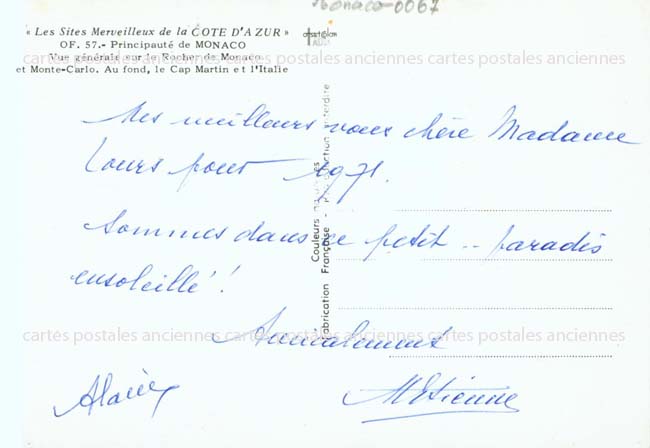 Monaco-0067
« Les Sites Merveilleux de la COTE D'AZUR »
OF. 57. - Principauté de MONACO
Vue générale sur le Rocher de Monaco
et Monte-Carlo. Au fond, le Cap Martin et l'Italie
cartes postales anciennes cartes postales anciennes cartes postales anciennes
Mes meilleurs vœux chère Madame
pour 1971.
Sommes dans ce petit .. paradis
ensoleillé !
cartes postales anciennes cartes postales anciennes cartes postales anciennes
Amicalement
MEtienne
Couleurs naturelles
Fabrication Française - Reproduction interdite